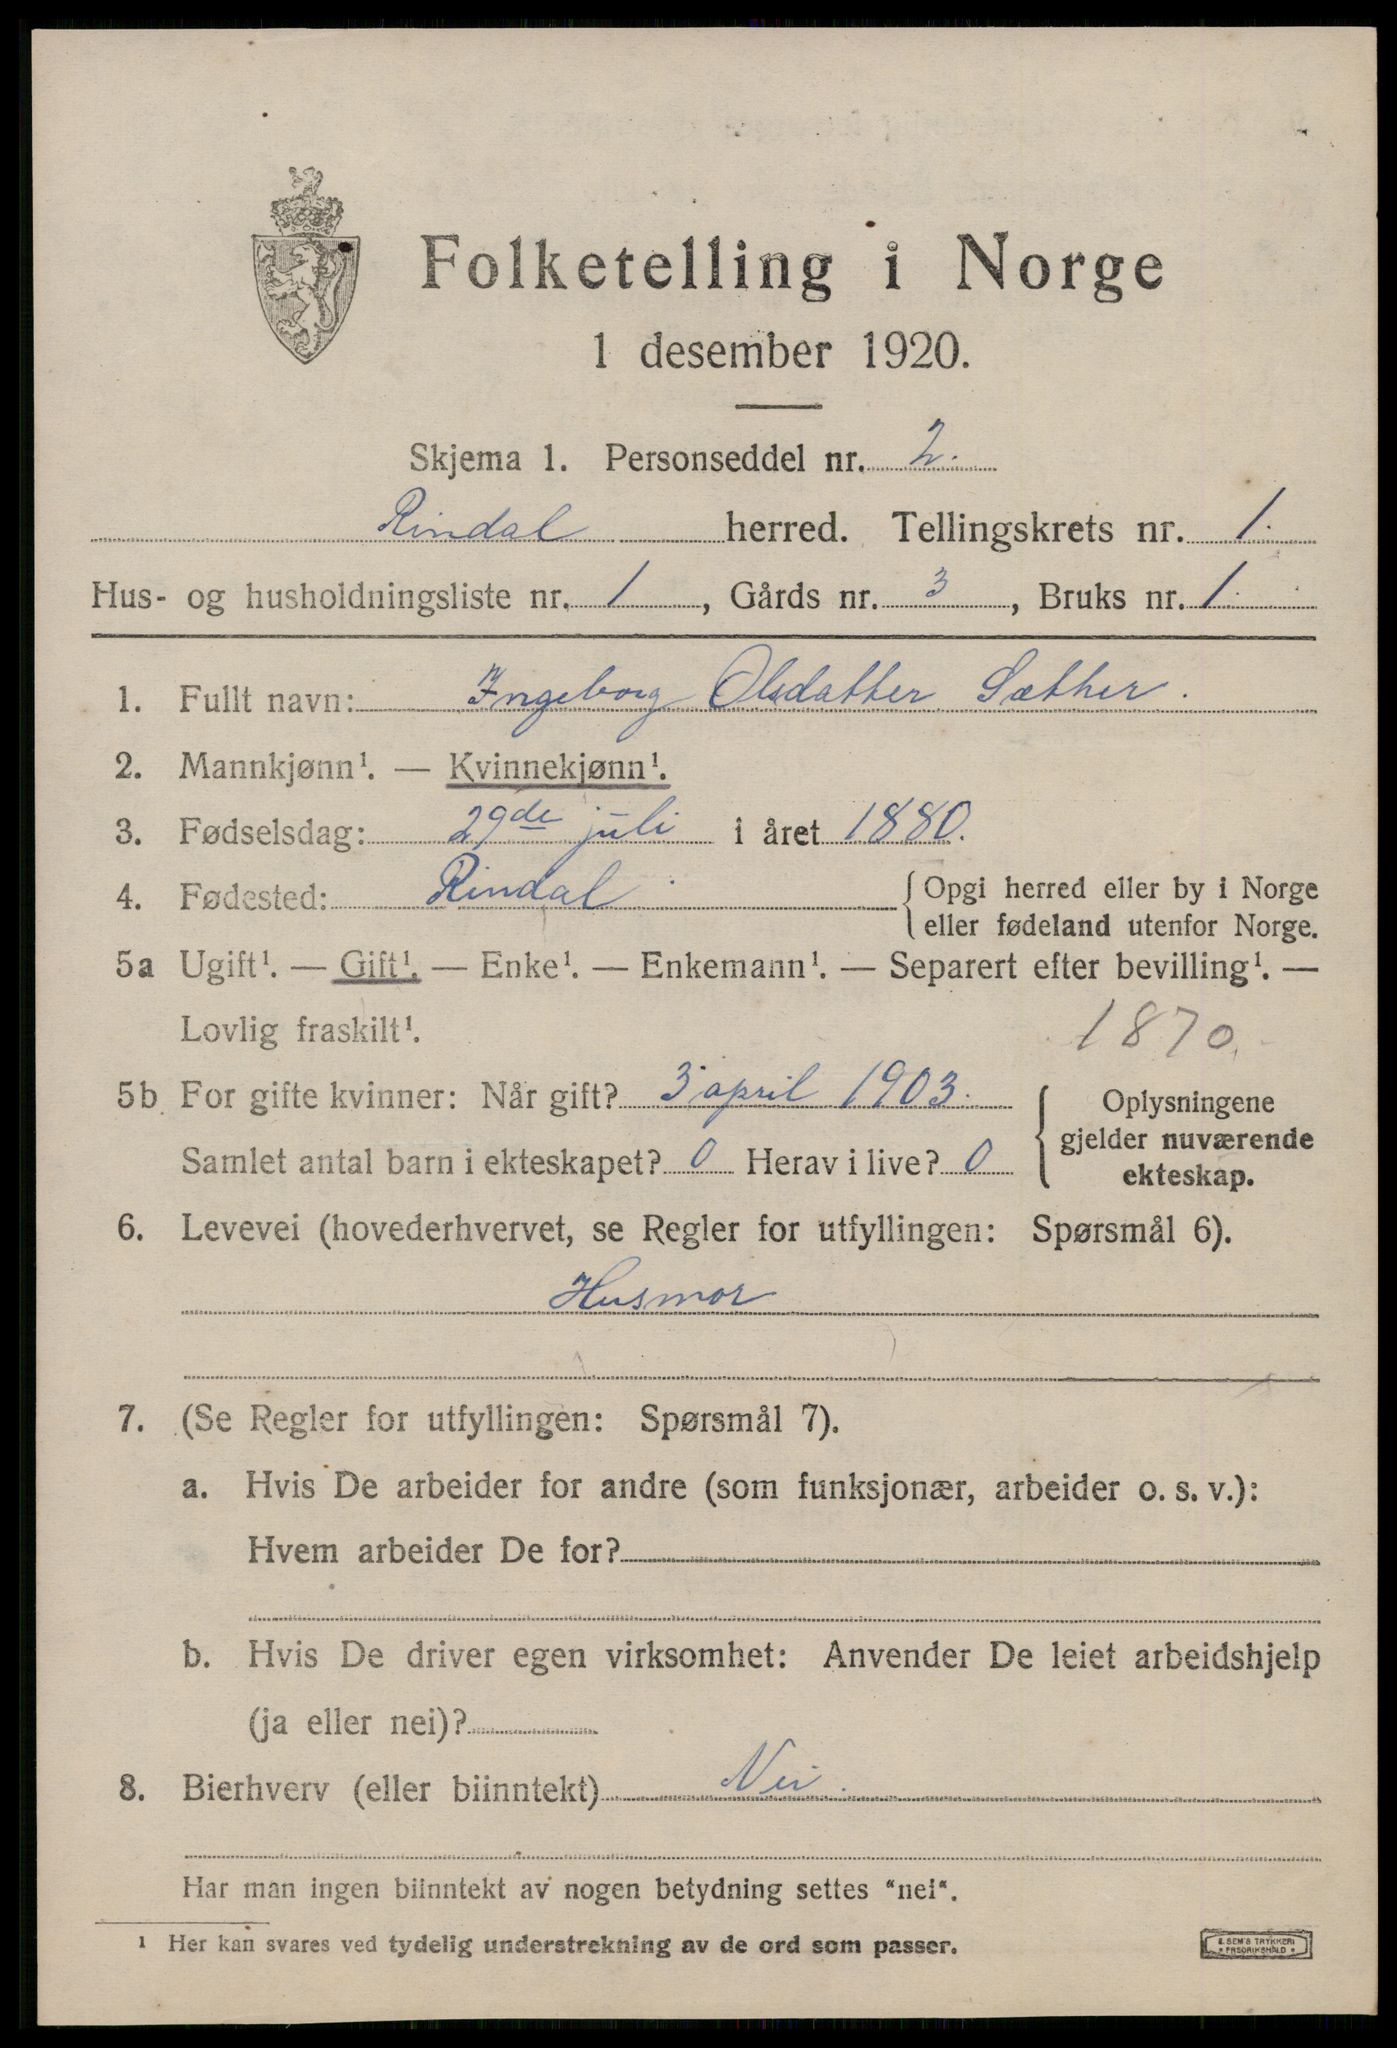 Folketelling i Norge
1 desember 1920.
Skjema 1. Personseddel nr. 2.
Rindal herred. Tellingskrets nr. 1.
Hus- og husholdningsliste nr. 1, Gårds nr. 3, Bruks nr. 1.
1. Fullt navn: Ingeborg Olsdatter Sæther.
2. Mannkjønn¹. — Kvinnekjønn¹.
3. Fødselsdag: 29de juli i året 1880.
4. Fødested: Rindal { Opgi herred eller by i Norge
eller fødeland utenfor Norge.
5a Ugift¹. — Gift¹. — Enke¹. — Enkemann¹. — Separert efter bevilling¹. —
Lovlig fraskilt¹. 1870.
5b For gifte kvinner: Når gift? 3 april 1903. { Oplysningene
gjelder nuværende
Samlet antal barn i ekteskapet? 0 Herav i live? 0
ekteskap.
6. Levevei (hovederhvervet, se Regler for utfyllingen: Spørsmål 6).
Husmor
7. (Se Regler for utfyllingen: Spørsmål 7).
a. Hvis De arbeider for andre (som funksjonær, arbeider o. s. v.):
Hvem arbeider De for?
b. Hvis De driver egen virksomhet: Anvender De leiet arbeidshjelp
(ja eller nei)?
8. Bierhverv (eller biinntekt) Nei.
Har man ingen biinntekt av nogen betydning settes "nei".
¹ Her kan svares ved tydelig understrekning av de ord som passer.
E. SEM'S TRYKKERI
• FREDRIKSHALD •